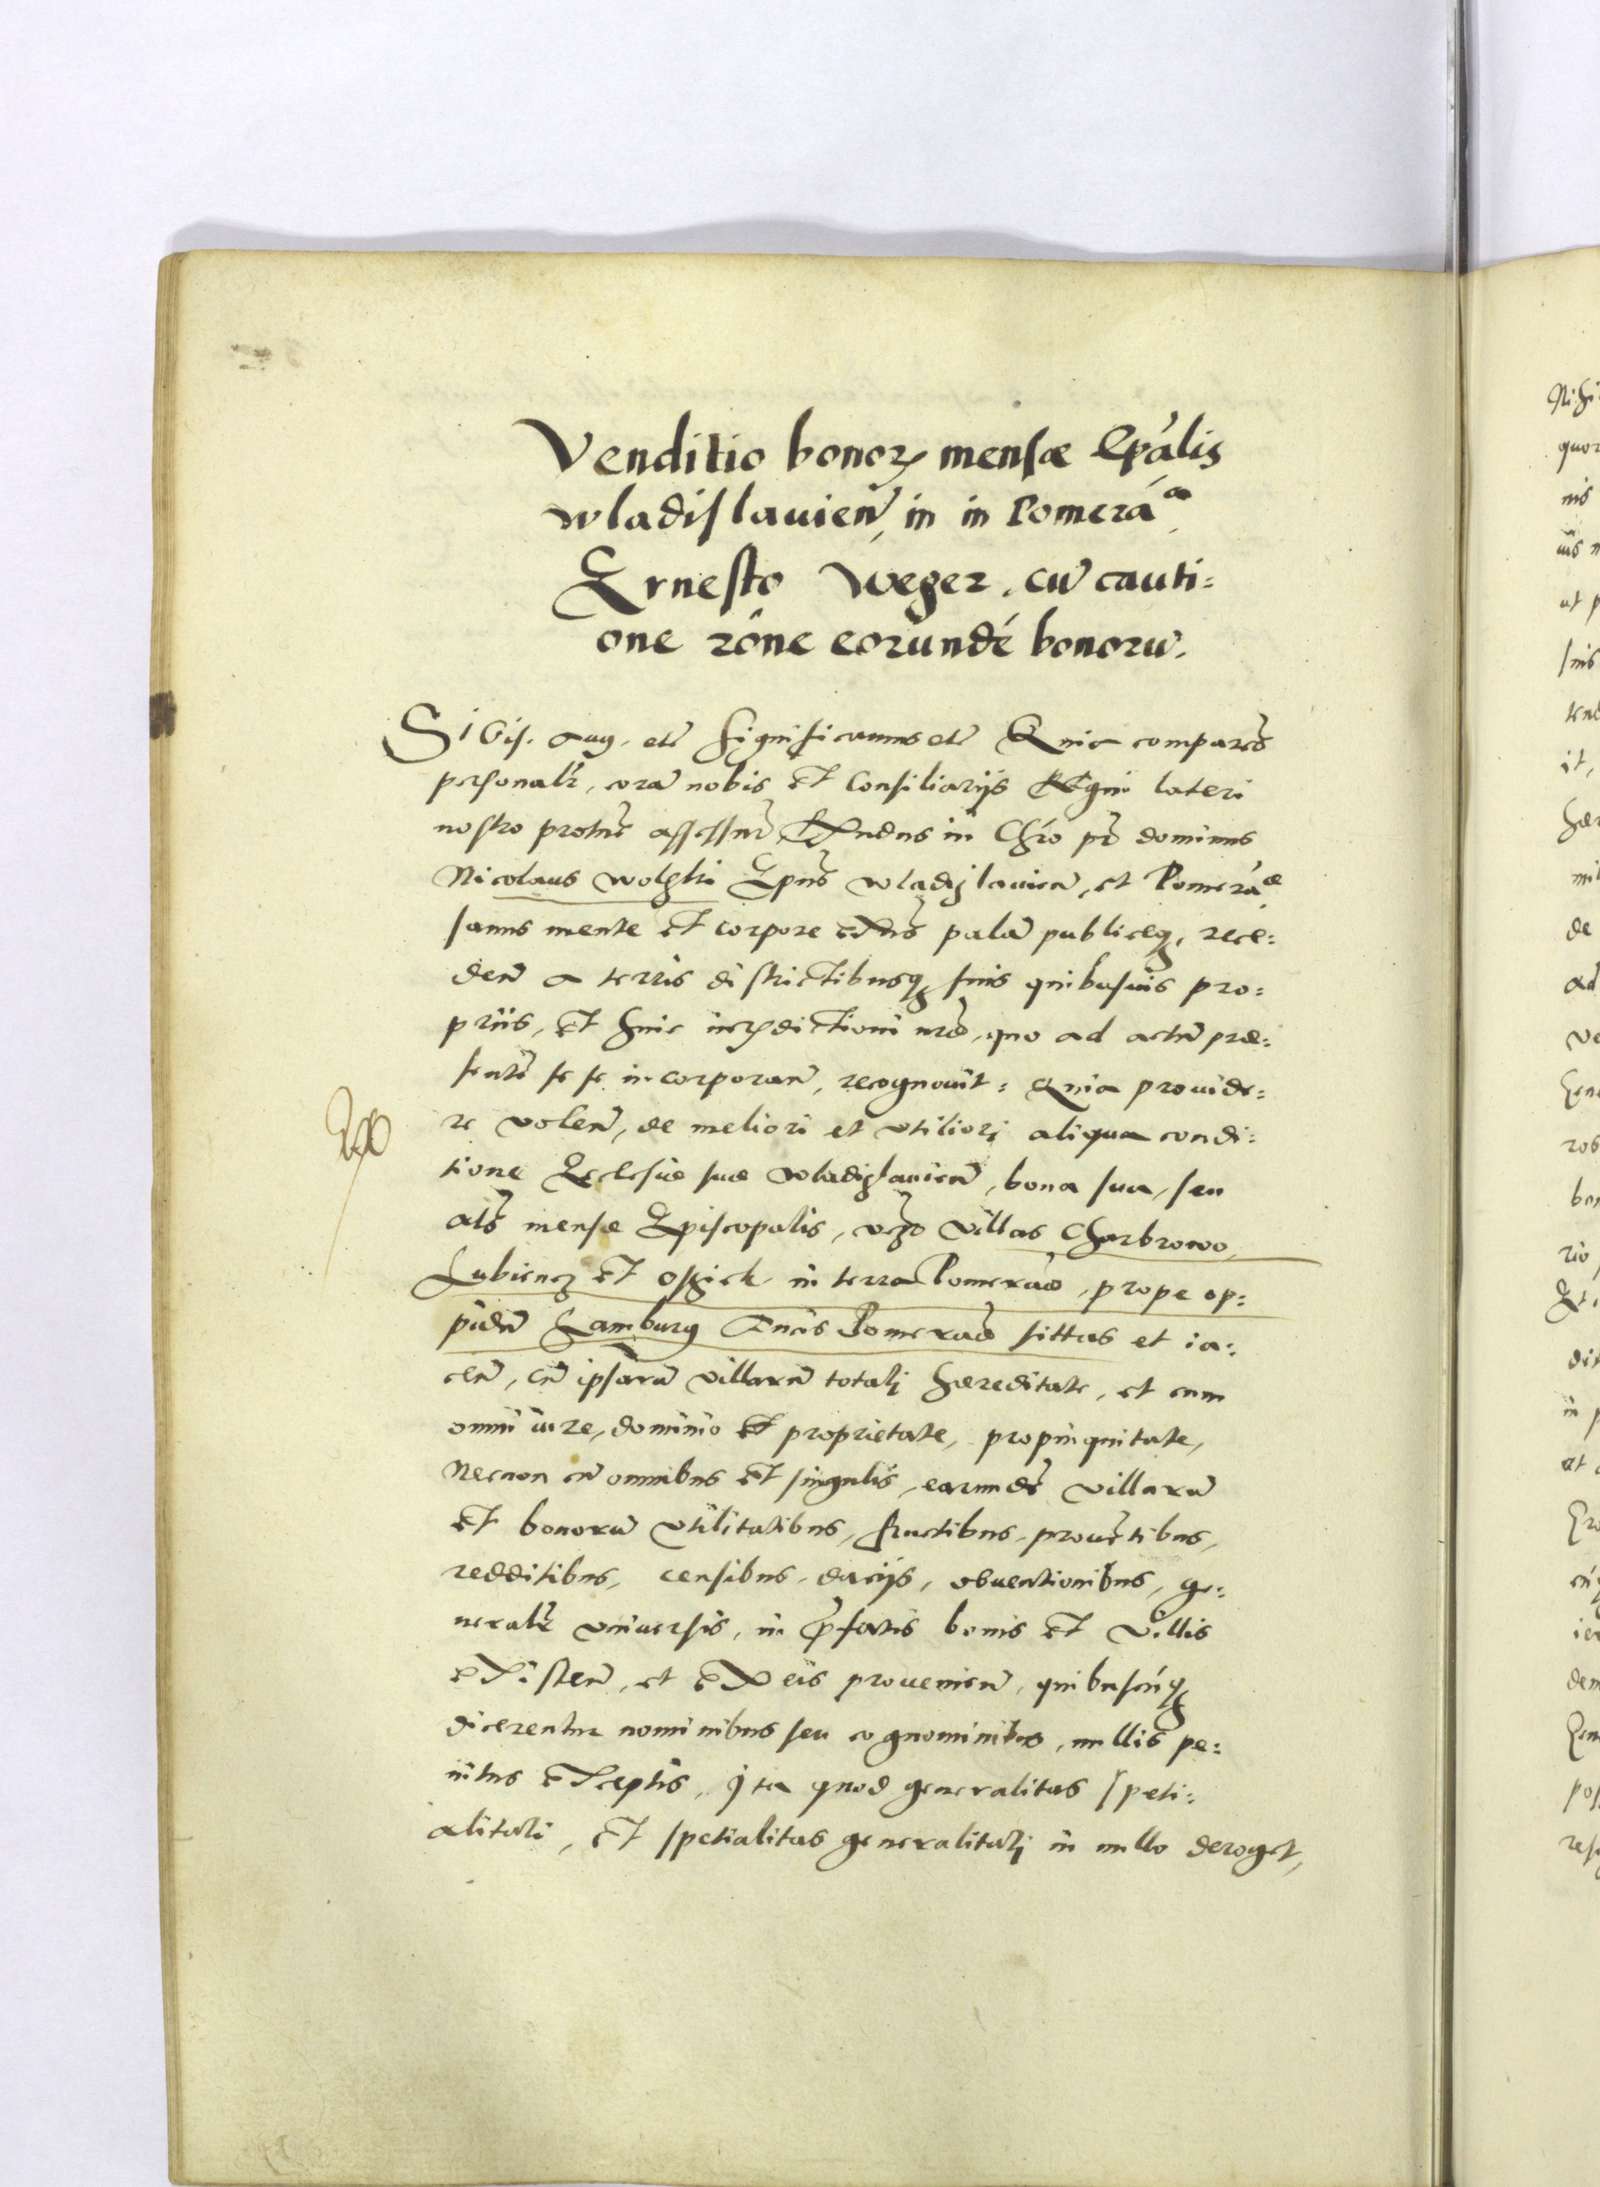 Venditio bonoꝝ mensæ Epális
wladislauien̄, in in Pomerá
Ernesto Weger, cū cauti:
one róne eorundé bonorū.
Sigis. Aug. etc̄ significamus etc̄ Quia comparēs
personalr̄, corā nobis et Consiliarijs Regni lateri
nostro assessur̄ in Chró pr̄ dominus
Nicolaus wolski Epūs wladislauien̄, et Pomerá
sanus mente et corpore palā publiceq̨, rece:
den̄ a terris districtibusq̨ suis quibusuis pro:
priis, et huic iurꝫdictioni nrē, quo ad actū præ:
sentē se se incorporan̄, recognouit: Quia prouide:
re volen̄, de meliori et vtiliori aliqua condi:
tione Ecclesiæ suæ wladislauien̄, bona sua, seu
als̄ mensæ Episcopalis, villas Charbrowo,
Lubiencz et Osziek in terra Pomeraē, prope op:
pidū Lamburg Pomeraē sittas et ia:
cen̄, cū ipsarū villarū totali hæreditate, et cum
omni iure, dominio et proprietate, propinquitate,
Necnon cū omnibus et singulis, earundē villarū
et bonorū vtilitatibus, fructibus, prouētibus,
redditibus, censibus, dacijs, obuentionibus, ge:
neralr̄ vniuersis, in p̄fatis bonis et villis
existen̄, et ex eis prouenien̄, quibuscúq̨
dicerentur nominibus seu cognominibus, nullis pe:
nitus exceptis, Ita quod generalitas speti:
alitati, et spetialitas generalitati in nullo deroget,